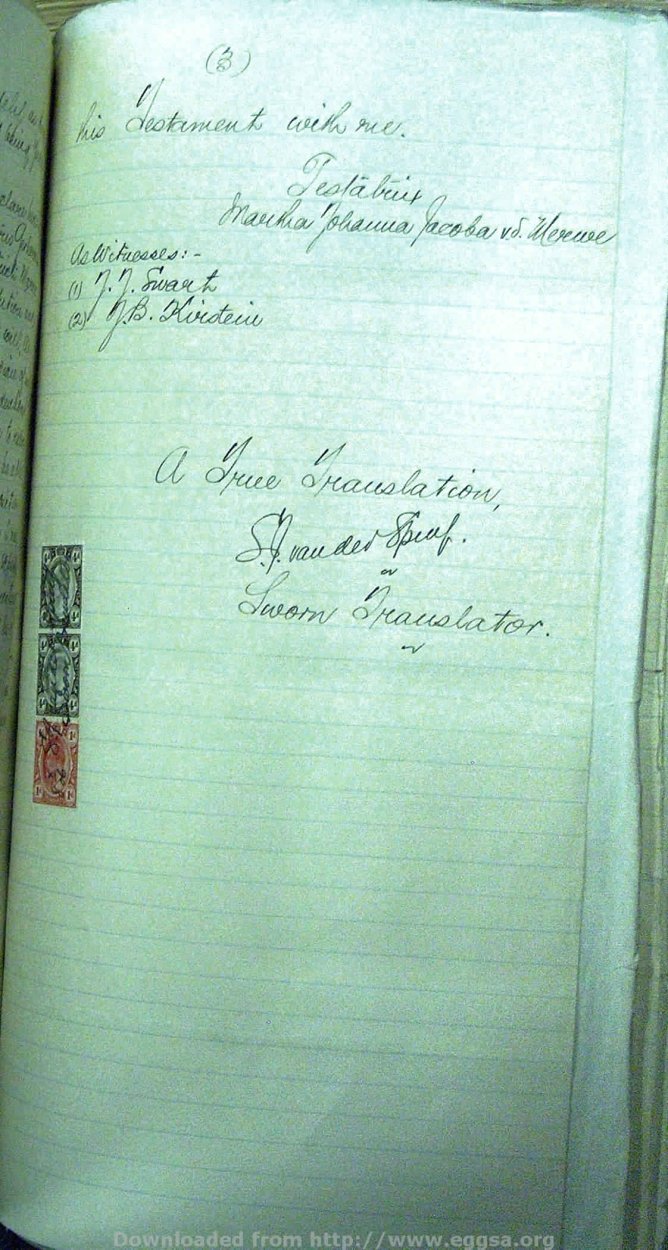 (3)
his Testament with me.
Testatrix
Martha Johanna Jacoba vd. Merwe
As Witnesses:-
(1) J. J. Swart
(2) J.B. Kirstein
A True Translation,
S.J. van der Spuy.
Sworn Translator.
Downloaded from http://www.eggsa.org